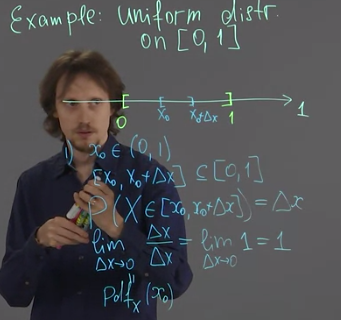 Example: Uniform distr.
on [0,1]
0 x₀ x₀+Δx 1 1
1) x₀ ∈ (0,1)
[x₀, x₀+Δx] ⊆ [0,1]
P(X ∈ [x₀, x₀+Δx]) = Δx
lim Δx→0 Δx/Δx = lim Δx→0 1 = 1
"
pdf_X (x₀)